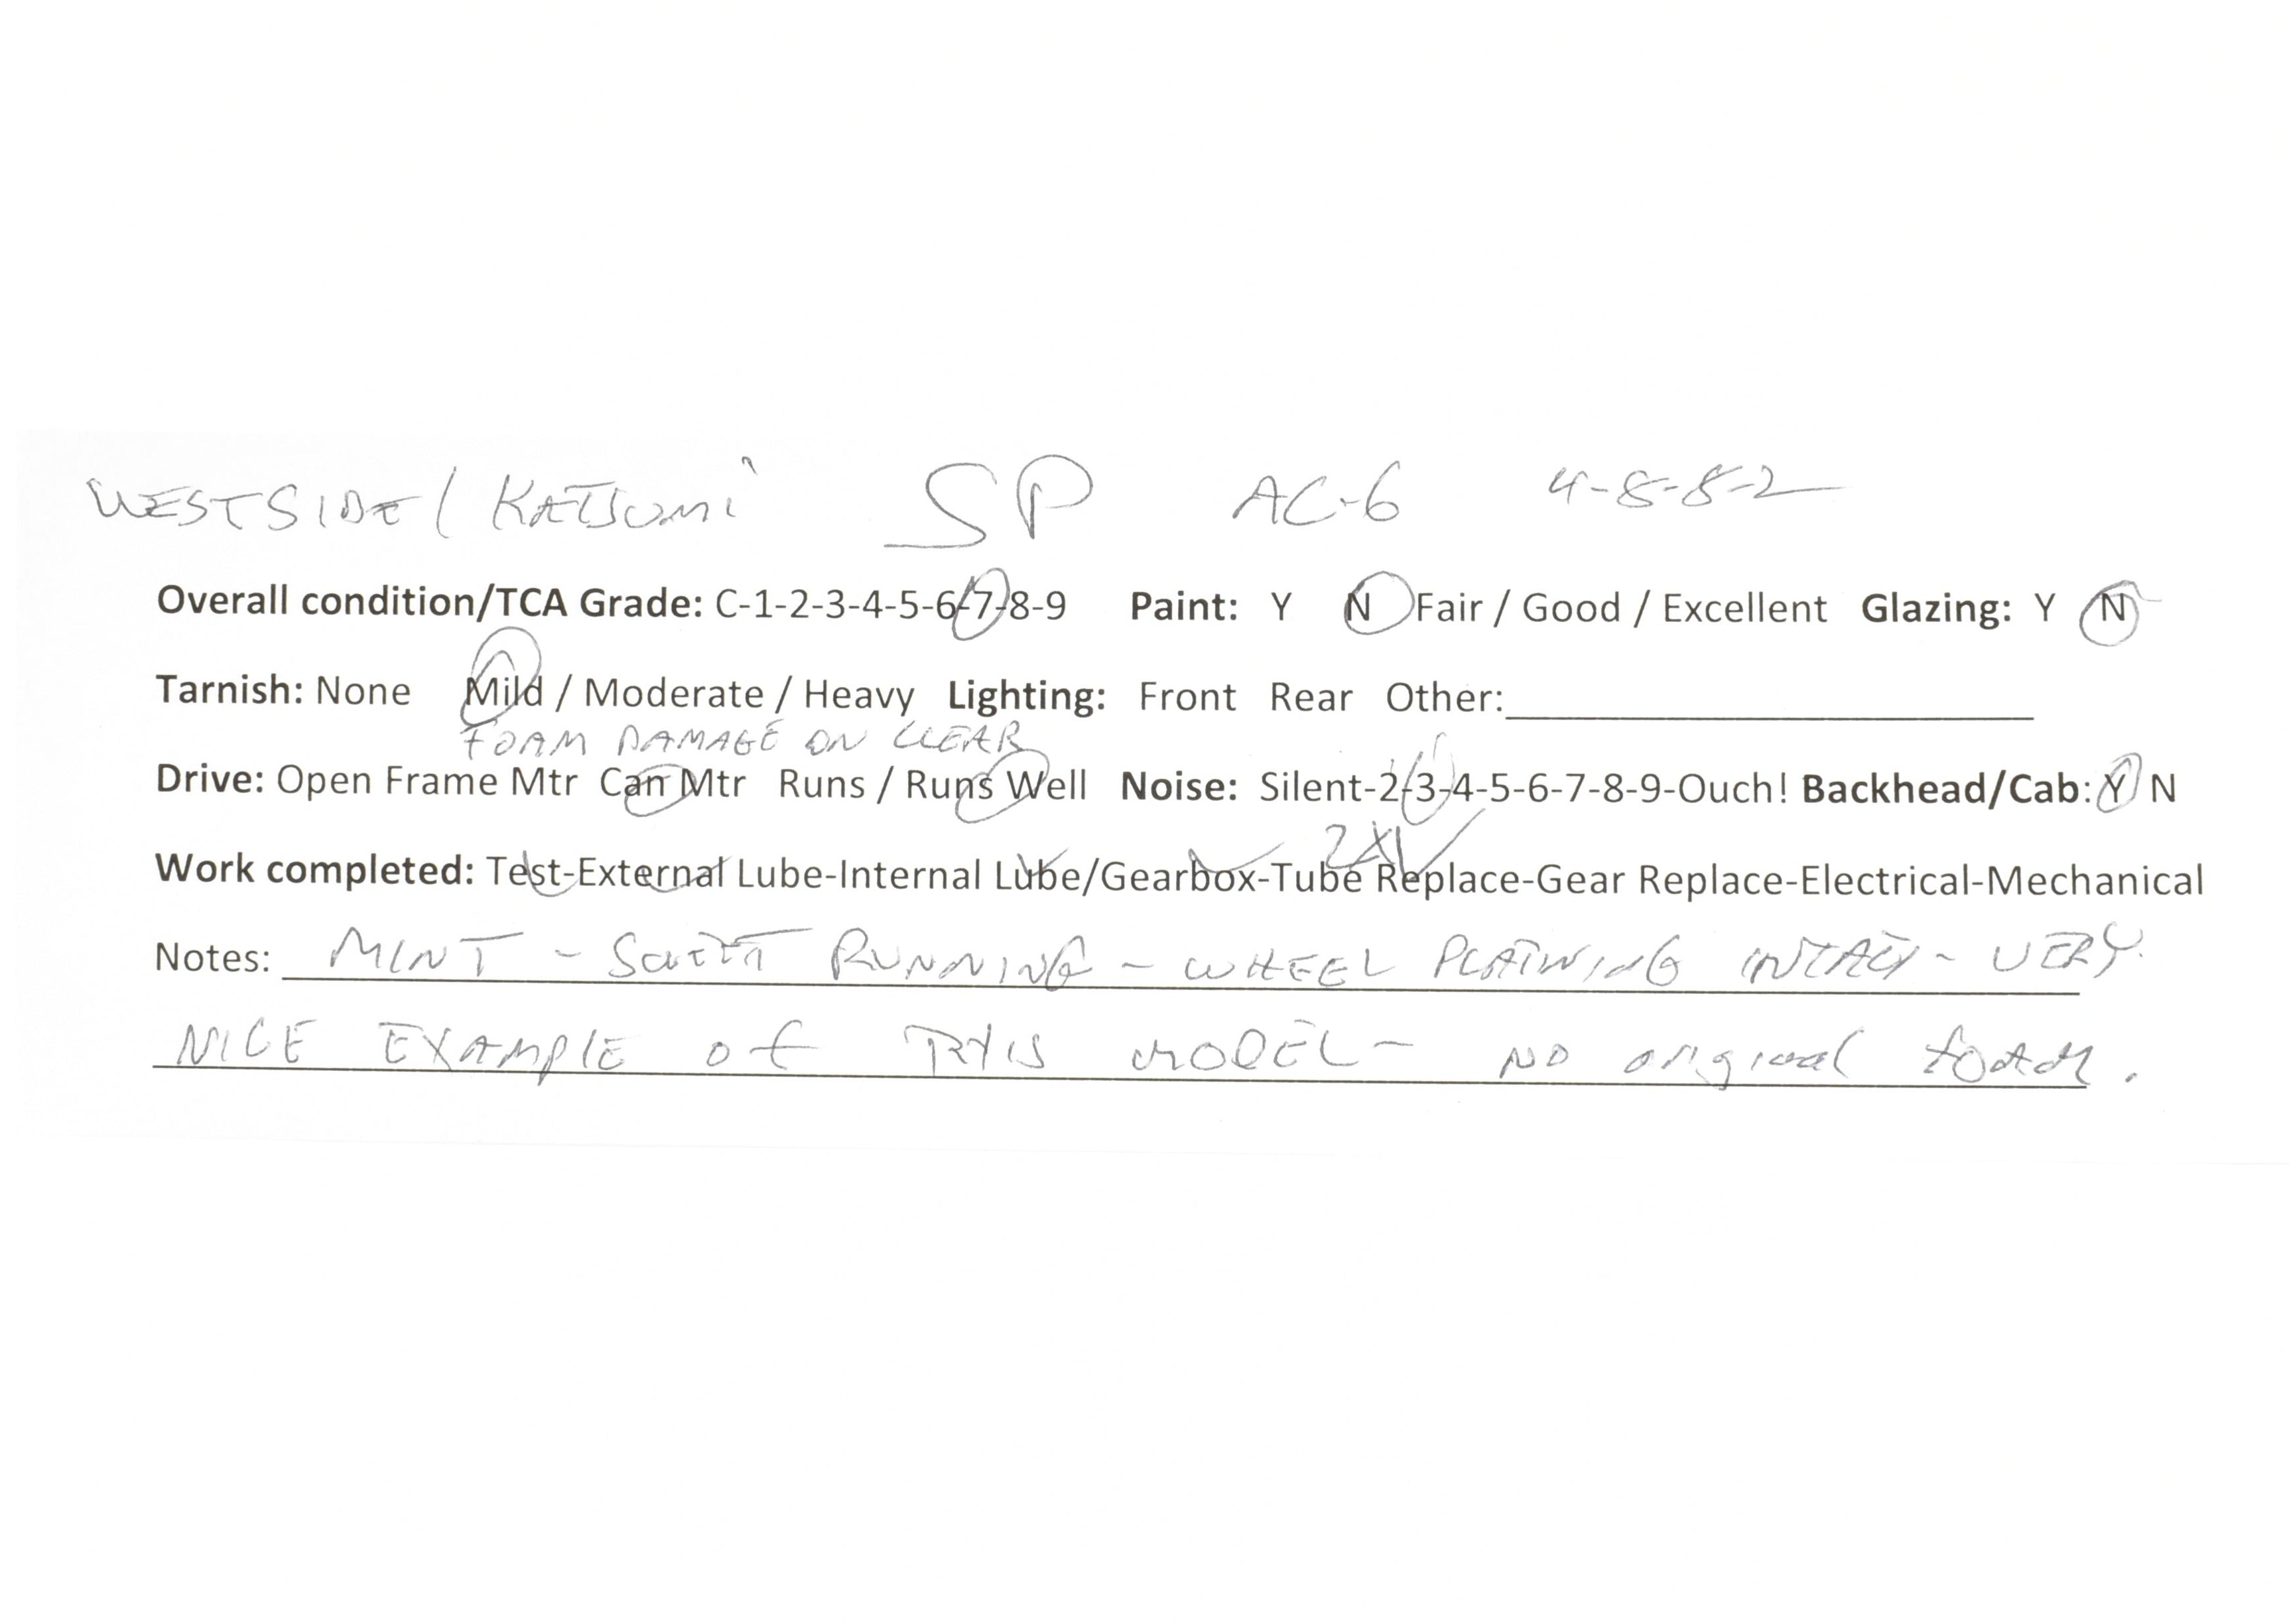 WESTSIDE / KATSUMI SP AC-6 4-8-8-2
Overall condition/TCA Grade: C-1-2-3-4-5-6-7-8-9 Paint: Y N Fair / Good / Excellent Glazing: Y N
Tarnish: None Mild / Moderate / Heavy Lighting: Front Rear Other:
FOAM DAMAGE ON CLEAR
Drive: Open Frame Mtr Can Mtr Runs / Runs Well Noise: Silent-2-3-4-5-6-7-8-9-Ouch! Backhead/Cab: Y N
2X
Work completed: Test-External Lube-Internal Lube/Gearbox-Tube Replace-Gear Replace-Electrical-Mechanical
Notes: MINT - RUNNING - WHEEL INTACT - VERY
NICE EXAMPLE of THIS MODEL - NO original foam.